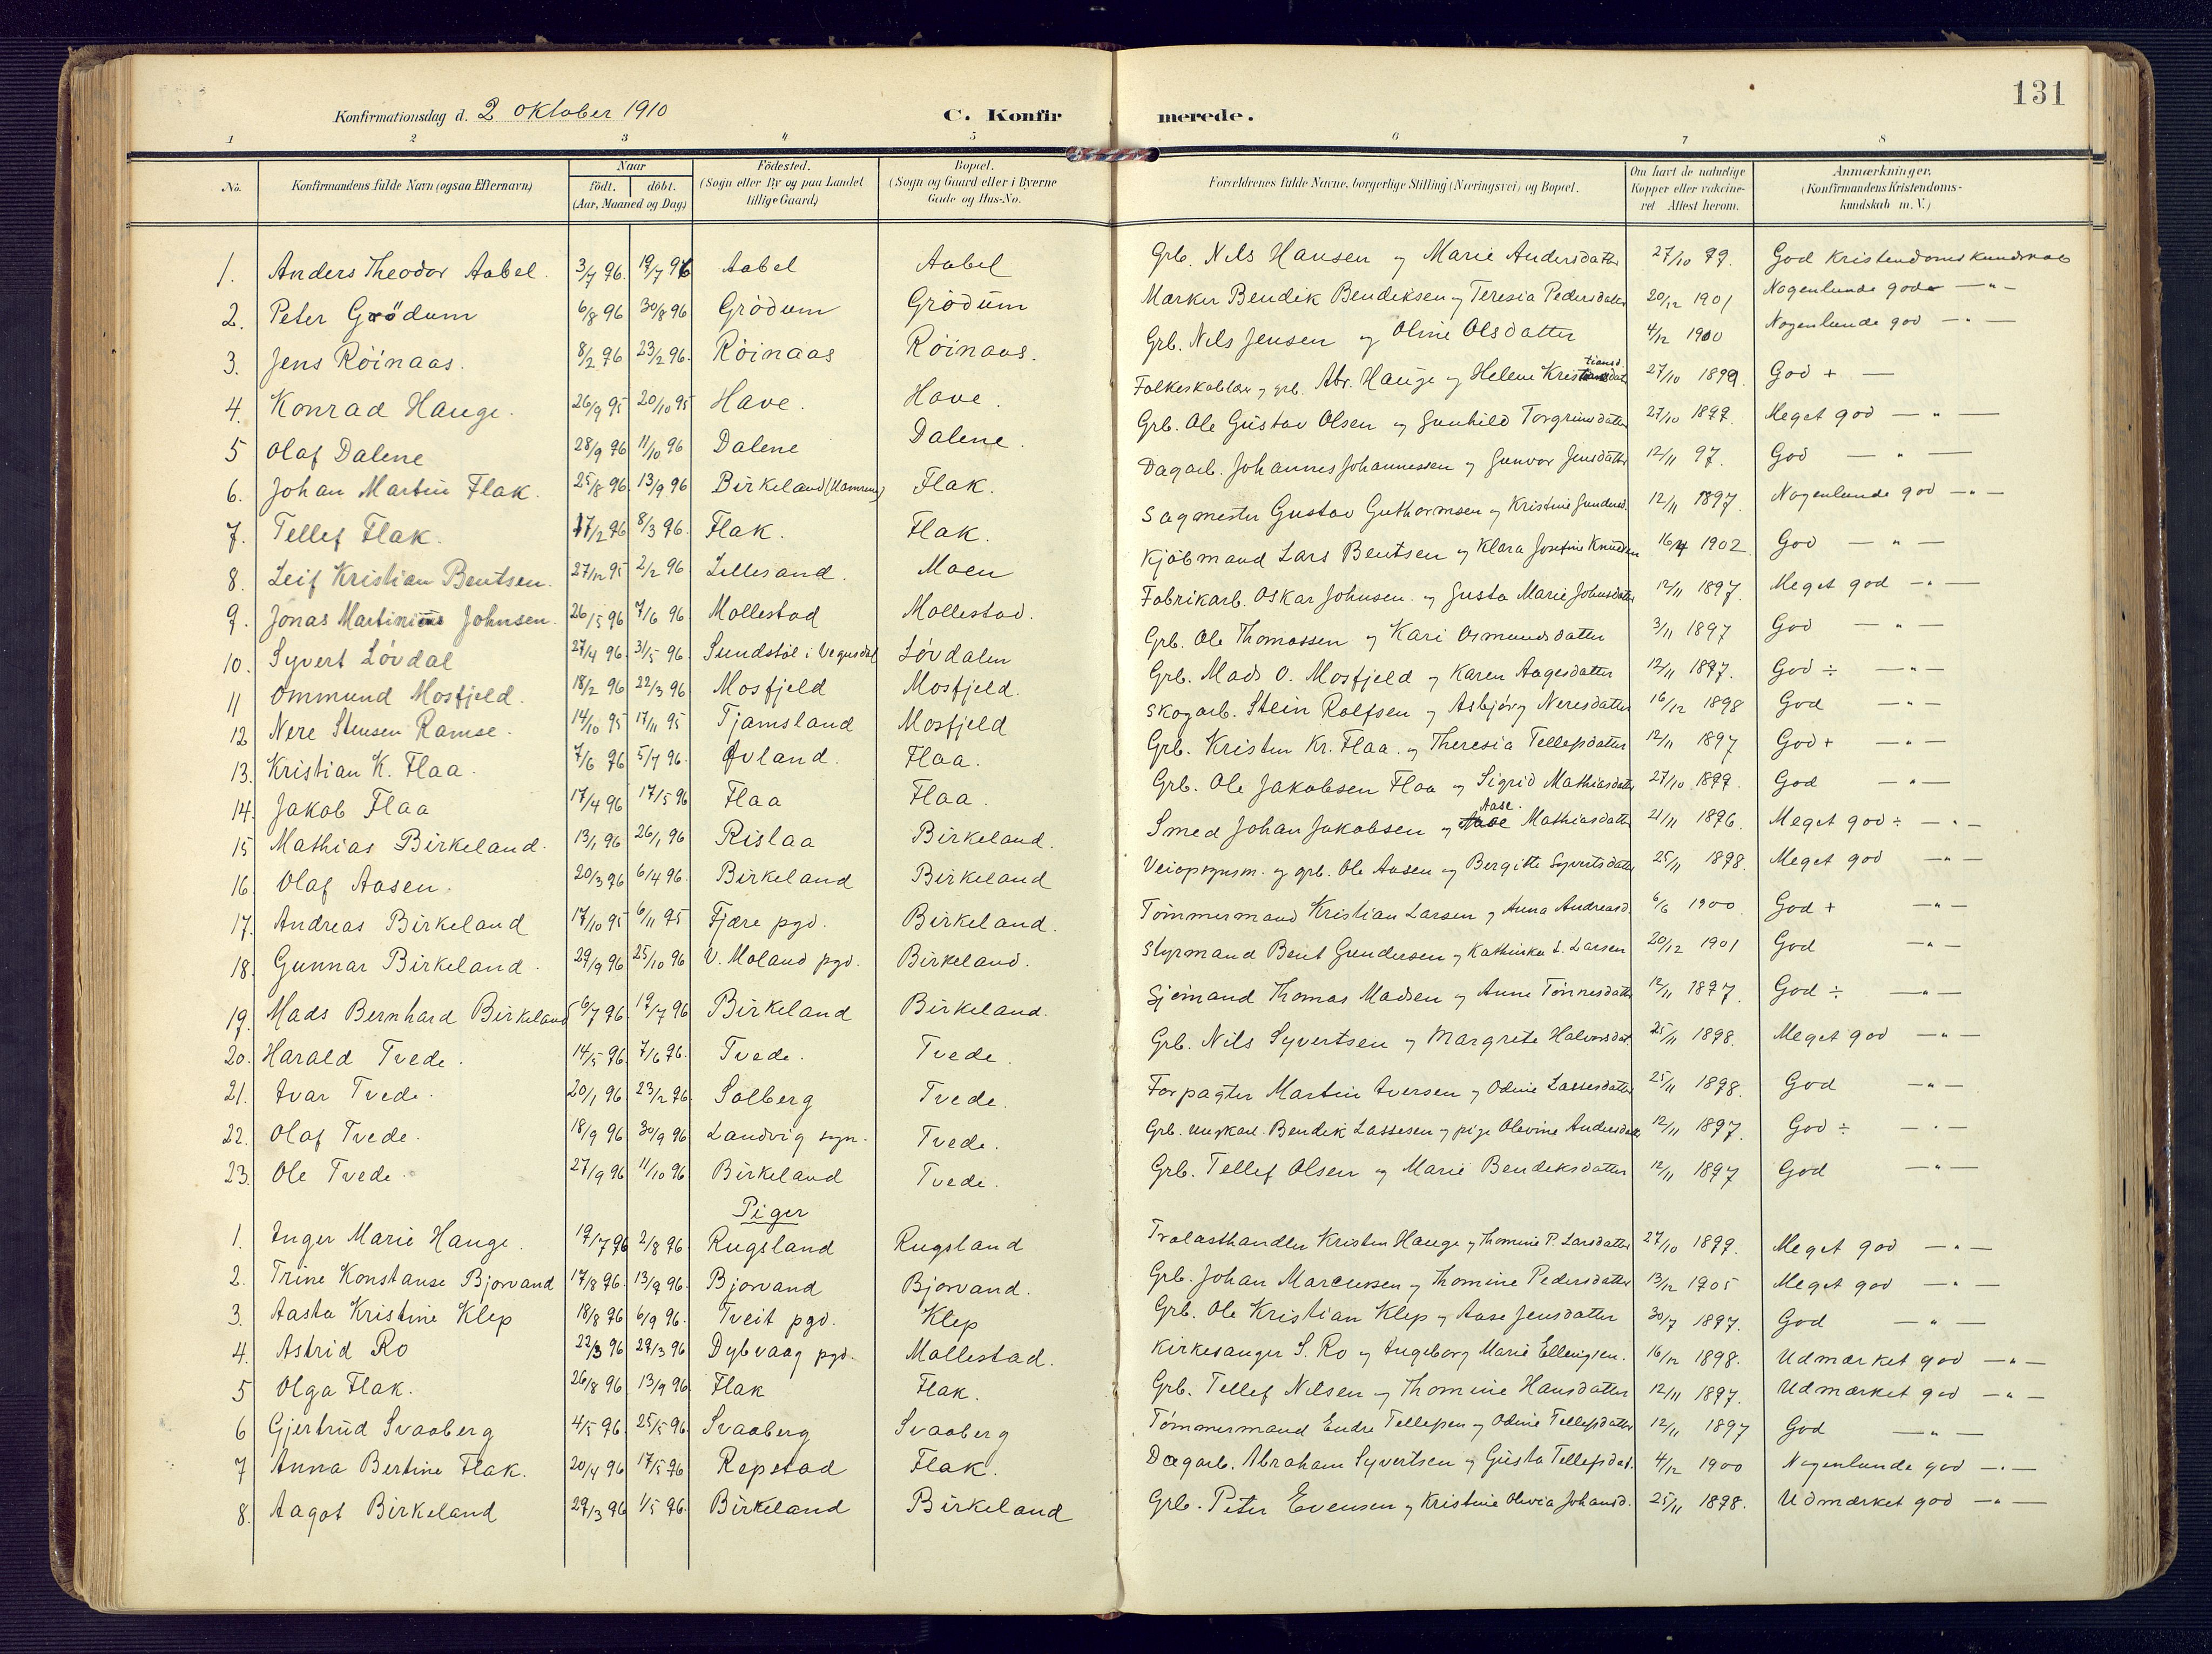 131
Konfirmationsdag d. 2 Oktober 1910 C. Konfirmerede.
1 2 3 4 5 6 7 8
No. Konfirmandens fulde Navn (ogsaa Efternavn) Naar födt. döbt. (Aar, Maaned og Dag) Födested. (Sogn eller By og paa Landet tillige Gaard) Bopæl. (Sogn og Gaard eller i Byerne Gade og Hus-No. Forældrenes fulde Navne, borgerlige Stilling (Næringsvei) og Bopæl. Om havt de naturlige Kopper eller vakcineret Attest herom. Anmærkninger. (Konfirmandens Kristendomskundskab m. V.)
1. Anders Theodor Aabel. 3/7 96. 19/7 96 Aabel Aabel Grb. Nils Hansen og Marie Andersdatter 27/10 99. God Kristendomskundskab
2. Peter Grödum 6/8 96 30/8 96 Grödum Grödum Marker Bendik Bendiksen og Teresia Pedersdatter 20/12 1901 Nogenlunde god — " —
3. Jens Röinaas. 8/2 96 23/2 96. Röinaas Röinaas. Grb. Nils Jensen og Oline Olsdatter 4/12 1900 Nogenlunde god — " —
4. Konrad Hauge. 26/9 95 20/10 95 Have. Have. Folkeskolelær. og grb. Abr. Hauge og Helene Kristiansd. 27/10 1899. God + —
5 Olaf Dalene 28/9 96 11/10 96 Dalene Dalene. Grb. Ole Gustav Olsen og Gunhild Torgrimsdatter 27/10 1899. Meget god — " —
6. Johan Martin Flak. 25/8 96. 13/9 96 Birkeland (Hamren) Flak. Dagarb. Johannes Johannessen og Gunvor Jensdatter 12/11 97. God — " —
7. Tellef Flak. 17/2 96 8/3 96. Flak. Flak. Sagmester Gustav Guthormsen og Kristine Gundersd. 12/11 1897. Nogenlunde god — " —
8. Leif Kristian Bentsen. 27/12 95 2/2 96 Lillesand. Moen Kjöbmand Lars Bentsen og Klara Josefine Knudsen 16/4 1902. God — " —
9. Jonas Martinius Johnsen. 26/5 96 7/6 96 Mollestad Mollestad. Fabrikarb. Oskar Johnsen. og Gusta Marie Johnsdatter 12/11 1897. Meget god — " —
10. Syvert Lövdal 27/4 96. 31/5 96. Sundstöl i Vegusdal Lövdalen Grb. Ole Thomassen og Kari Osmundsdatter 3/11 1897 God — " —
11 Ommund Mosfjeld. 18/2 96 22/3 96 Mosfjeld Mosfjeld. Grb. Mads O. Mosfjeld og Karen Aagesdatter 12/11 1897. God ÷ — " —
12 Nere Stensen Ramse. 14/10 95 17/11 95 Tjamsland Mosfjeld Skogarb. Stein Rolfsen og Asbjörg Neresdatter 16/12 1898 God — " —
13. Kristian K. Flaa. 7/6 96 5/7 96. Øvland. Flaa. Grb. Kristen Kr. Flaa. og Theresia Tellefsdatter 12/11 1897 God + — " —
14. Jakob Flaa 17/4 96 17/5 96 Flaa Flaa. Grb. Ole Jakobsen Flaa og Sigrid Mathiasdatter 27/10 1899. God — " —
15 Mathias Birkeland. 13/1 96 26/1 96 Rislaa Birkeland. Smed Johan Jakobsen og Aase Mathiasdatter 21/11 1896. Meget god ÷ — " —
16. Olaf Aasen. 20/3 96 6/4 96. Birkeland Birkeland Veiopsynsm. og grb. Ole Aasen og Bergitte Syvertsdatter 25/11 1898. Meget god — " —
17. Andreas Birkeland 17/10 95 6/11 95 Fjære pgd. Birkeland. Tömmermand Kristian Larsen og Anna Andreasd. 6/6 1900 God + — " —
18. Gunnar Birkeland. 29/9 96 25/10 96 V. Moland pgd. Birkeland. Styrmand Bent Gundersen og Kathinka L. Larsen 20/12 1901 God — " —
19. Mads Bernhard Birkeland 6/7 96. 19/7 96 Birkeland Birkeland. Sjömand Thomas Madsen og Anne Tönnesdatter 12/11 1897. God ÷ — " —
20. Harald Tvede. 14/5 96. 7/6 96. Tvede. Tvede. Grb. Nils Syvertsen og Margrete Halvorsdat. 25/11 1898. Meget god — " —
21. Ivar Tvede. 20/1 96 23/2 96 Solberg Tvede. Forpagter Martin Iversen og Odine Lassesdatter 25/11 1898. God — " —
22. Olaf Tvede. 18/9 96 30/9 96 Landvig sogn. Tvede. Grb. ungkarl. Bendik Lassesen og pige Olevine Andersdatter 12/11 1897. God ÷ — " —
23. Ole Tvede. 27/9 96 11/10 96 Birkeland Tvede. Grb. Tellef Olsen og Marie Bendiksdatter 12/11 1897 God — " —
Piger
1. Inger Marie Hauge. 19/7 96 2/8 96. Rugsland Rugsland Trælasthandler Kristen Hauge og Thomine P. Larsdatter 27/10 1899. Meget god — " —
2. Trine Konstanse Bjorvand 17/8 96. 13/9 96. Bjorvand Bjorvand. Grb. Johan Marcussen og Thomine Pedersdatter 13/12 1905 Meget god — " —
3. Aasta Kristine Klep 18/8 96 6/9 96. Tveit pgd. Klep Grb. Ole Kristian Klep og Aase Jensdatter 30/7 1897. God — " —
4. Astrid Ro 22/3 96 29/3 96 Dybvaag pgd. Mollestad. Kirkesanger S. Ro og Ingeborg Marie Ellengsen. 16/12 1898. Udmærket god — " —
5 Olga Flak. 26/8 96 13/9 96 Flak Flak. Grb. Tellef Nilsen og Thomine Hansdatter 12/11 1897. Udmærket god — " —
6 Gjertrud Svaaberg 4/5 96. 25/5 96. Svaaberg Svaaberg Tömmermand Endre Tellefsen og Odine Tellefsdatter 12/11 1897 God — " —
7 Anna Bertine Flak. 20/4 96 17/5 96 Repstad Flak. Dagarb. Abraham Syvertsen og Gusta Tellefsdat. 4/12 1900 Nogenlunde god — " —
8. Aagot Birkeland 29/3 96 1/5 96. Birkeland Birkeland Grb. Peter Evensen og Kristine Olivia Johansd. 25/11 1898. Udmærket god — " —